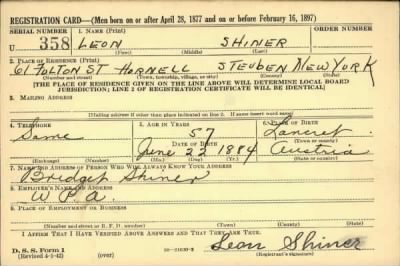 REGISTRATION CARD—(Men born on or after April 28, 1877 and on or before February 16, 1897)
SERIAL NUMBER 1. NAME (Print) ORDER NUMBER
U 358 LEON SHINER
(First) (Middle) (Last)
2. PLACE OF RESIDENCE (Print)
61 FULTON ST HORNELL STEUBEN NEW YORK
(Number and street) (Town, township, village, or city) (County) (State)
[THE PLACE OF RESIDENCE GIVEN ON THE LINE ABOVE WILL DETERMINE LOCAL BOARD
JURISDICTION; LINE 2 OF REGISTRATION CERTIFICATE WILL BE IDENTICAL]
3. MAILING ADDRESS
[Mailing address if other than place indicated on line 2. If same insert word same]
4. TELEPHONE 5. AGE IN YEARS 6. PLACE OF BIRTH
Same 57
DATE OF BIRTH (Town or county)
June 22 1884 Austria
(Exchange) (Number) (Mo.) (Day) (Yr.) (State or country)
7. NAME AND ADDRESS OF PERSON WHO WILL ALWAYS KNOW YOUR ADDRESS
Bridget Shiner
8. EMPLOYER'S NAME AND ADDRESS
W.P.A.
9. PLACE OF EMPLOYMENT OR BUSINESS
(Number and street or R. F. D. number) (Town) (County) (State)
I AFFIRM THAT I HAVE VERIFIED ABOVE ANSWERS AND THAT THEY ARE TRUE.
D. S. S. Form 1
(Revised 4-1-42) (over) Leon Shiner
(Registrant's signature)